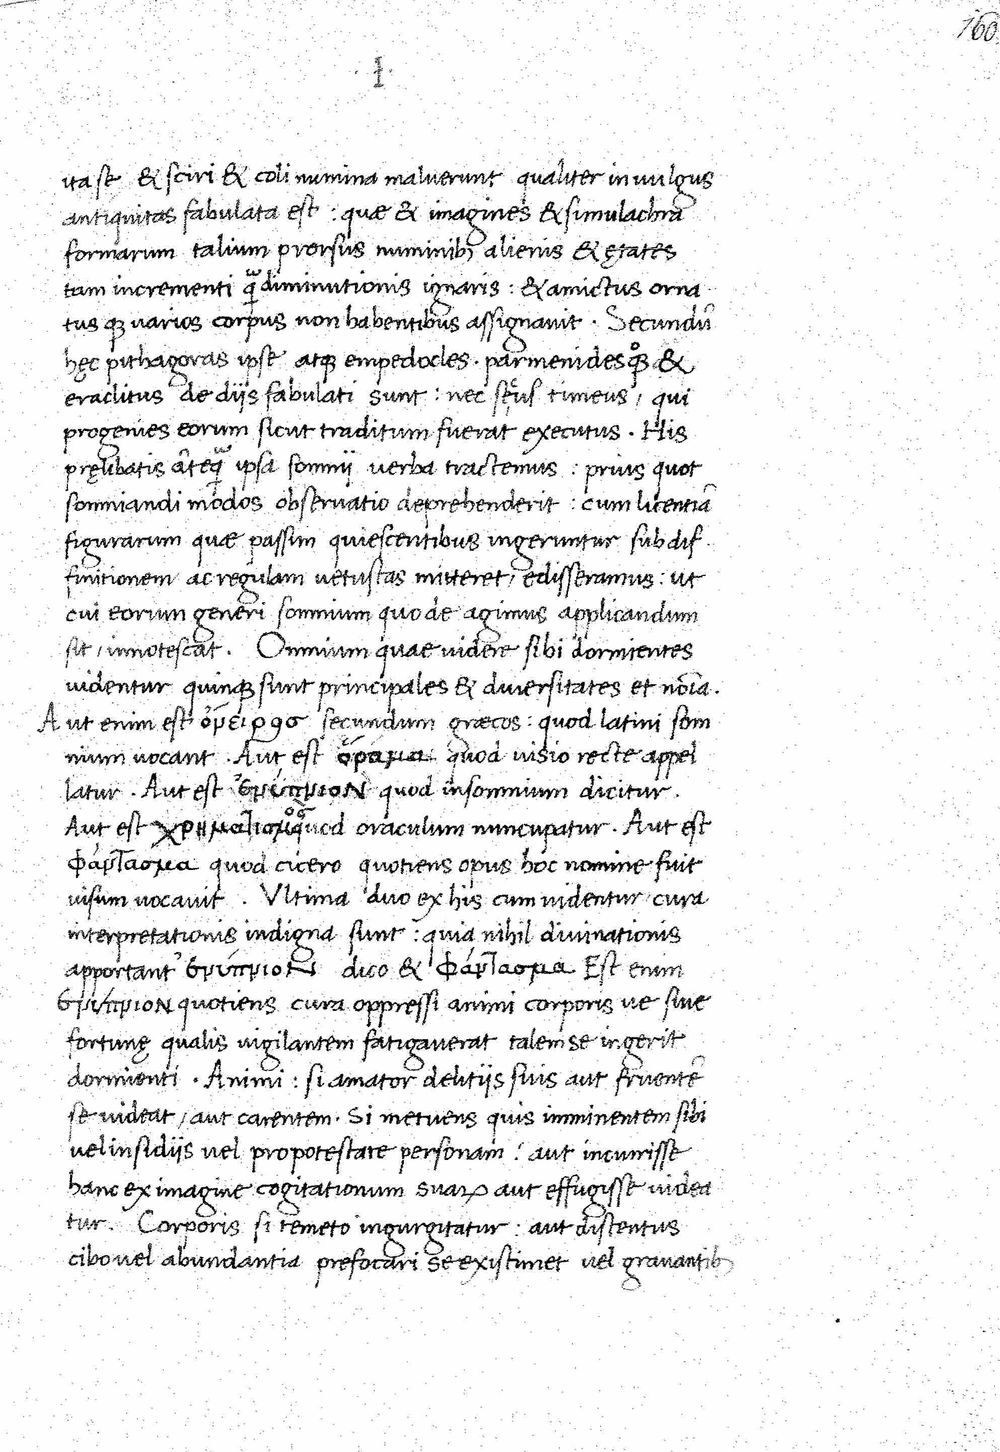 160
1
ita se & sciri & coli numina maluerunt qualiter in uulgus
antiquitas fabulata est : quæ & imagines & simulachra
formarum talium prorsus numinibꝫ alienis & ętates
tam incrementi ꝙ̃ diminutionis ignaris : & amictus orna
tus qꝫ uarios corpus non habentibus assignauit . Secundũ
hęc pithagoras ipse atqꝫ empedocles . parmenides qꝫ &
eraclitus de diis fabulati sunt : nec secus timeus , qui
progenies eorum sicut traditum fuerat executus . His
pręlibatis ãteq̃ ipsa somnij uerba tractemus : prius quot
somniandi modos obseruatio deprehenderit : cum licentiã
figurarum quæ passim quiescentibus ingeruntur sub dif
finitionem ac regulam uetustas mitteret , edisseramus : ut
cui eorum generi somnium quo de agimus applicandum
sit , innotescat . Omnium quae uidere sibi dormientes
uidentur quinqꝫ sunt principales & diuersitates et noĩa .
Aut enim est ὄνειρος secundum græcos : quod latini som
nium uocant . Aut est ὅραμα quod uisio recte appel
latur . Aut est ἐνύπνιον quod insomnium dicitur .
Aut est χρηματισμος quod oraculum nuncupatur . Aut est
φάντασμα quod cicero quotiens opus hoc nomine fuit
uisum uocauit . Vltima duo ex his cum uidentur cura
interpretationis indigna sunt : quia nihil diuinationis
apportant ἐνύπνιον dico & φάντασμα Est enim
ἐνύπνιον quotiens cura oppressi animi corporis ue siue
fortunę qualis uigilantem fatigauerat talem se ingerit
dormienti . Animi : si amator delitijs suis aut fruentẽ
se uideat , aut carentem . Si metuens quis imminentem sibi
uel insidijs uel pro potestate personam : aut incurrisse
hanc ex imagine cogitationum suaꝝ aut effugisse uidea
tur . Corporis si temeto ingurgitatur : aut distentus
cibo uel abundantia prefocari se existimet uel grauantibꝫ